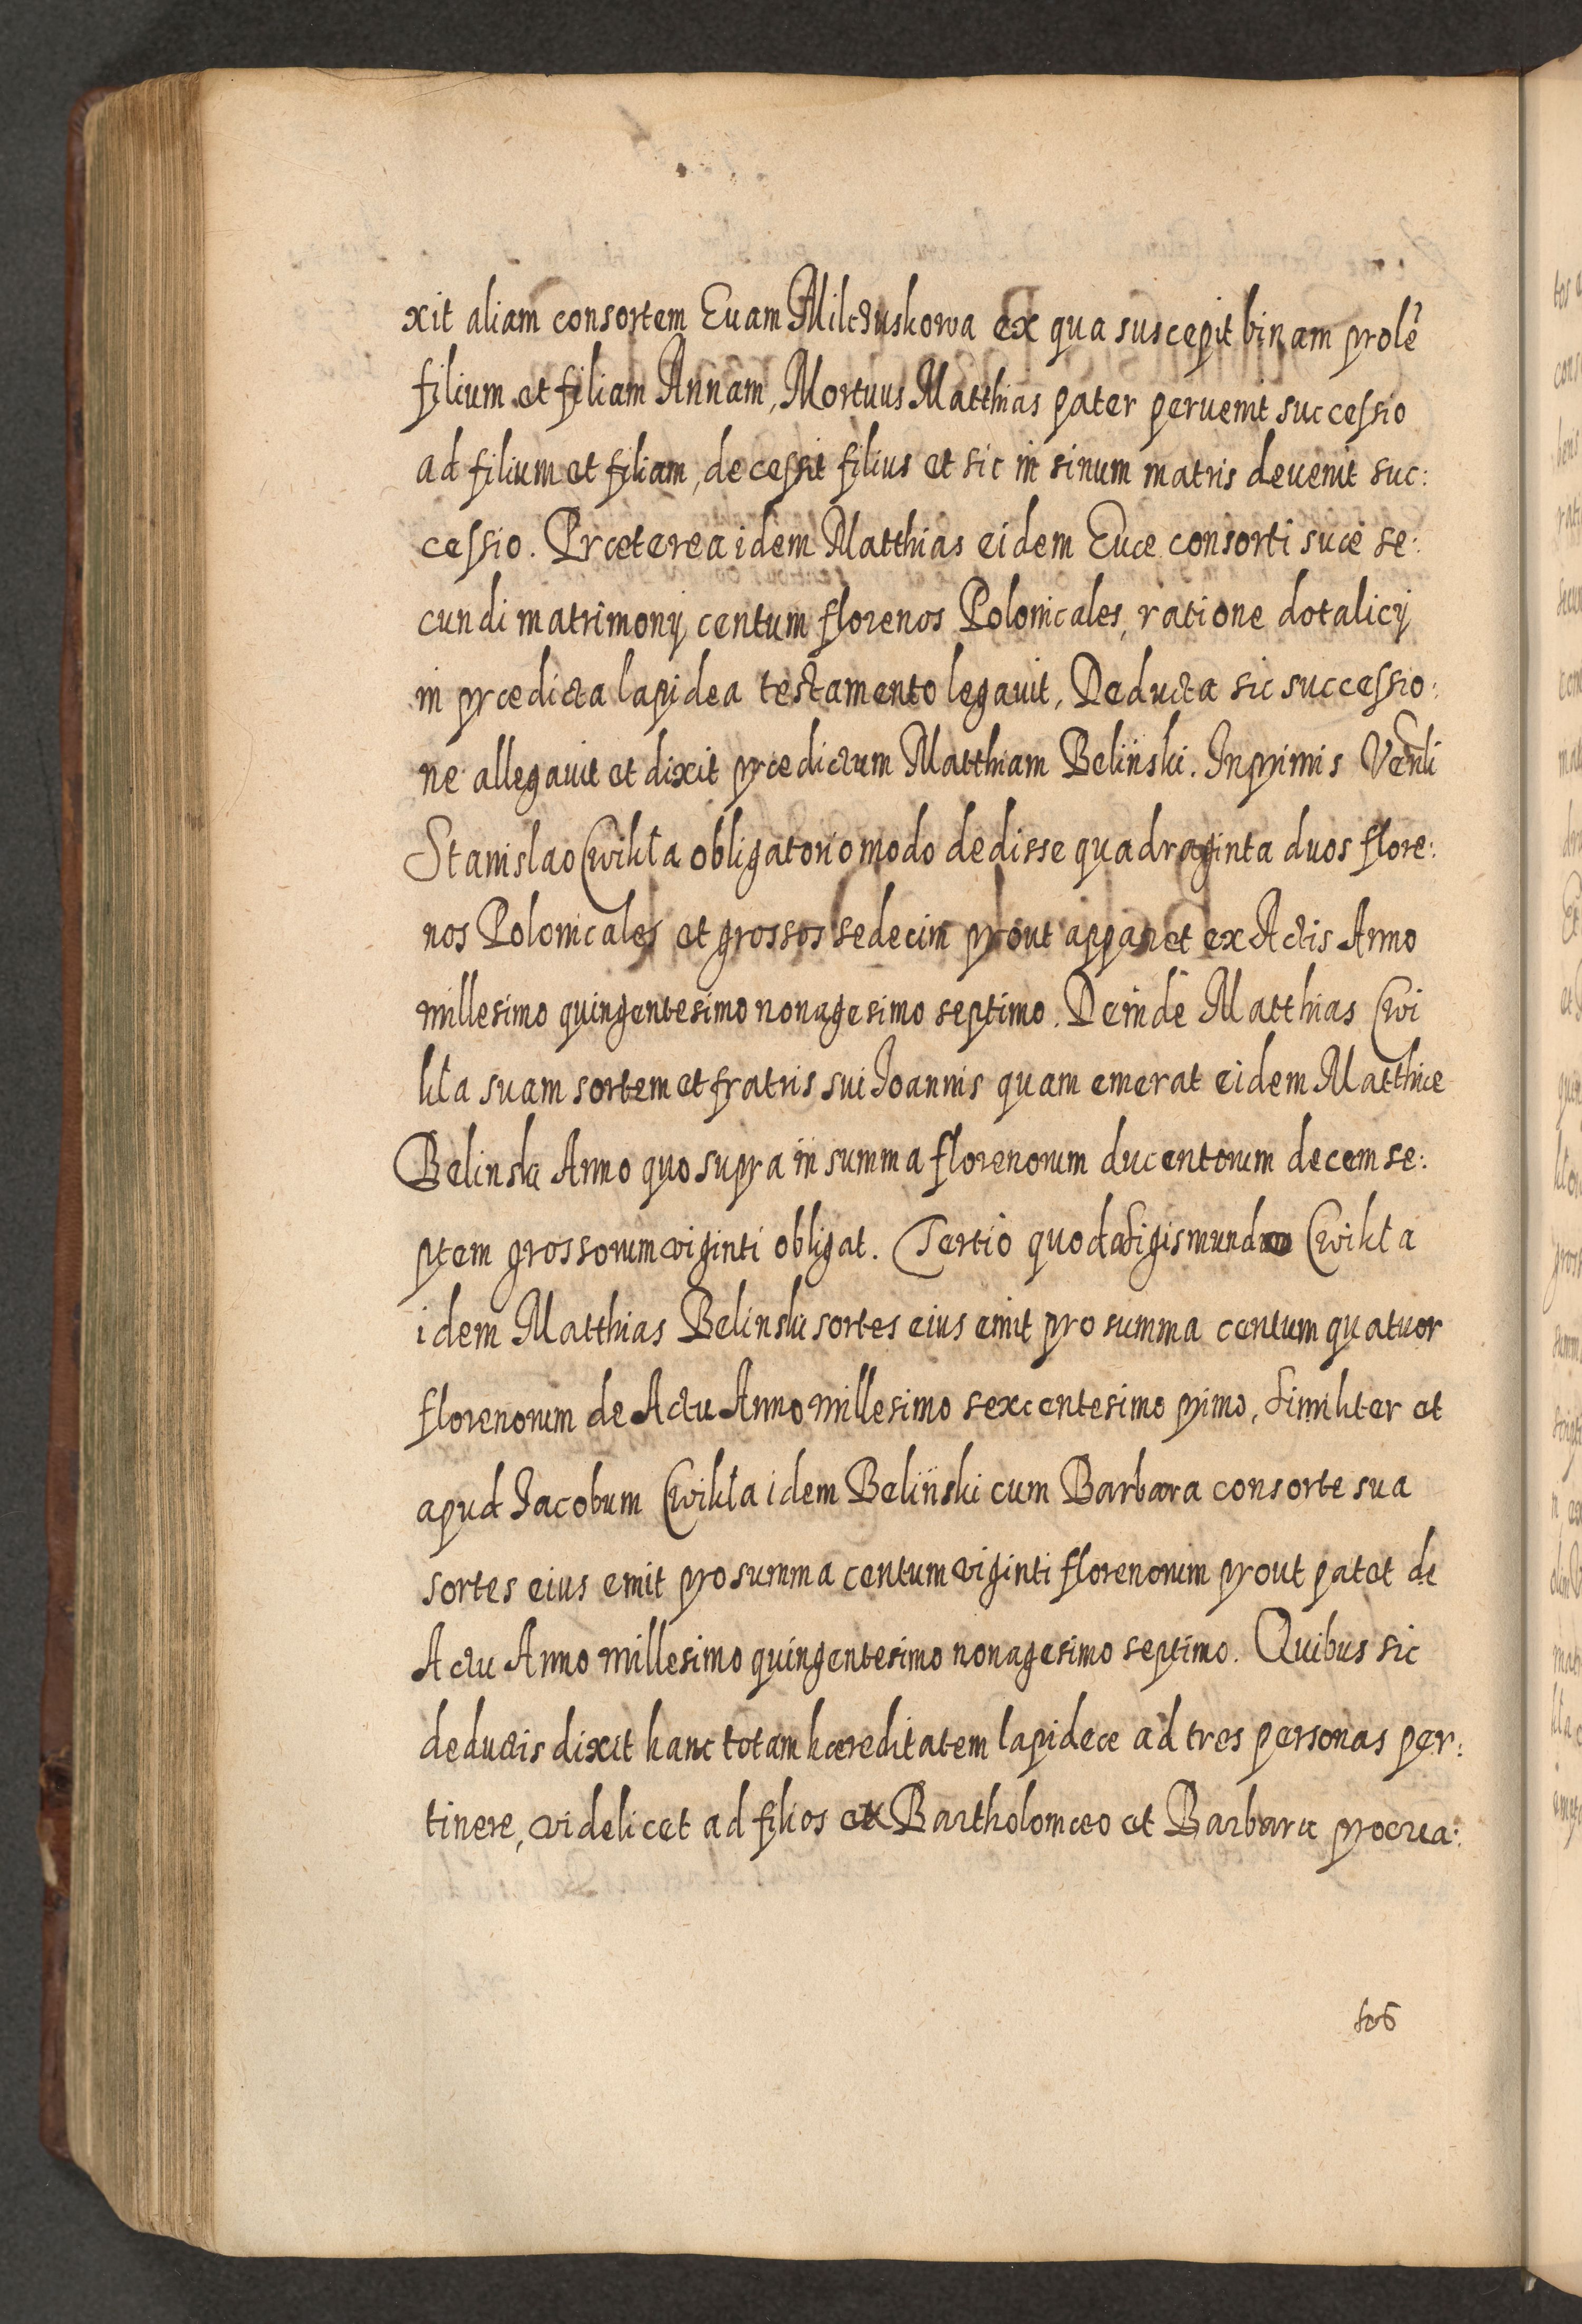 xit aliam consortem Euam Milczuskowa ex qua suscepit binam prolē
filium et filiam Annam, Mortuus Matthias pater peruenit successio
ad filium et filiam, decessit filius et sic in sinum matris deuenit suc:
cessio. Præterea idem Matthias eidem Euæ consorti suæ se:
cundi matrimonij centum florenos Polonicales, ratione dotalicij
in prædicta lapidea testamento legauit, Deducta sic successio:
ne allegauit et dixit prædictum Matthiam Belinski. Inprimis Venli
Stanislao Cwikła obligatorio modo dedisse quadraginta duos flore:
nos Polonicales et grossos sedecim prout apparet ex Actis Anno
millesimo quingentesimo nonagesimo septimo. Deinde Matthias Cwi
kła suam sortem et fratris sui Joannis quam emerat eidem Matthiæ
Belinski Anno quo supra in summa florenorum ducentorum decem se:
ptem grossorum viginti obligat. Tertio quod a Sigismundo Cwikła
idem Matthias Belinski sortes eius emit pro summa centum quatuor
florenorum de Actu Anno millesimo sexcentesimo primo, Similiter et
apud Jacobum Cwikła idem Belinski cum Barbara consorte sua
sortes eius emit pro summa centum viginti florenorum prout patet de
Actu Anno millesimo quingentesimo nonagesimo septimo. Quibus sic
deductis dixit hanc totam hæreditatem lapideæ ad tres personas per:
tinere, videlicet ad filios ex Bartholomæo et Barbara procrea: